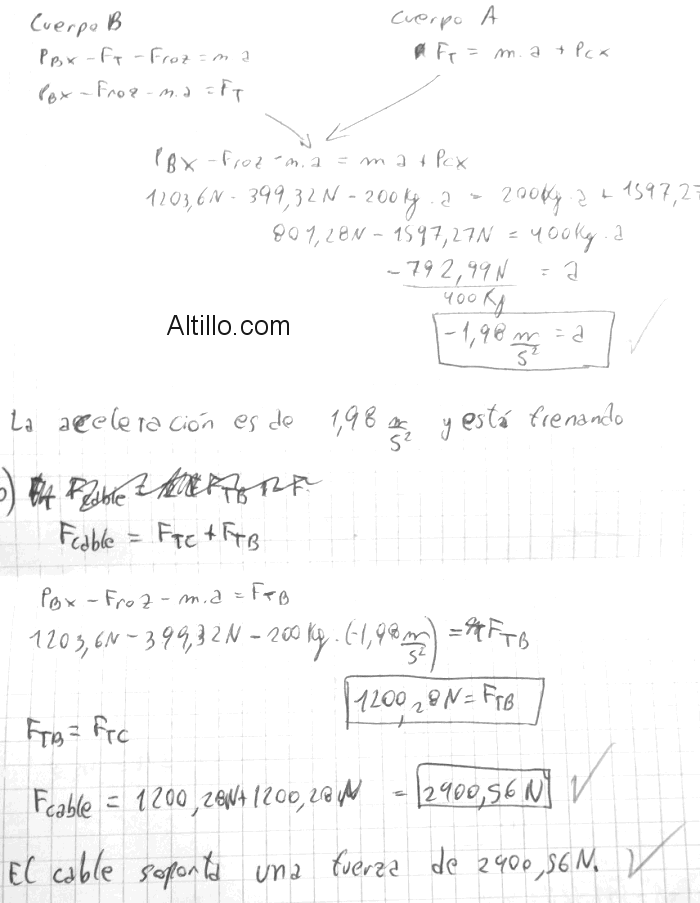 Cuerpo B
Cuerpo A
P_Bx - F_T - Froz = m a
F_T = m.a + Pcx
P_Bx - Froz - m.a = F_T
P_Bx - Froz - m.a = m a + Pcx
1203,6N - 399,32N - 200Kg.a = 200Kg.a + 1597,27
801,28N - 1597,27N = 400Kg.a
-792,99N / 400Kg = a
Altillo.com
-1,98 m/s² = a
La aceleración es de 1,98 m/s² y está frenando
b)
Fcable = F_TC + F_TB
P_Bx - Froz - m.a = F_TB
1203,6N - 399,32N - 200Kg.(-1,98 m/s²) = F_TB
1200,28N = F_TB
F_TB = F_TC
Fcable = 1200,28N + 1200,28N = 2900,56N
El cable soporta una fuerza de 2900,56N.